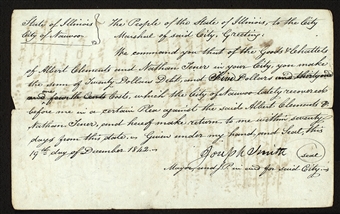 State of Illinois } The People of the State of Illinois, to the City
City of Nauvoo } Marshal of said City, Greeting.
We command you that of the Goods & Chattels
of Albert Clements and Nathan Tener in your City, you make
the sum of Twenty Dollars Debt, and Nine Dollars and thirty and
and fourth Cents Cost, which the City of Nauvoo lately recovered
before me in a certain Plea against the said Albert Clements &
Nathan Tener, and hereof make return to me within seventy
days from this date. Given under my hand, and Seal, this
19th day of December 1842.
Joseph Smith seal
Mayor, and J. P. in and for said City.